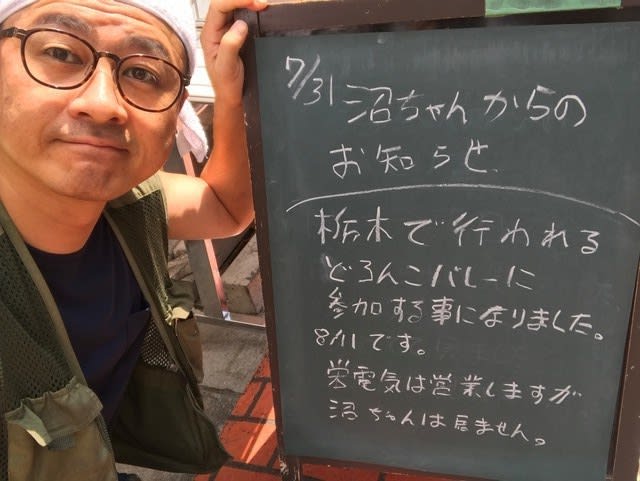 7/31 沼ちゃんからの
お知らせ
栃木で行われる
どろんこバレーに
参加する事になりました。
8/11です。
栄電気は営業しますが
沼ちゃんは居ません。